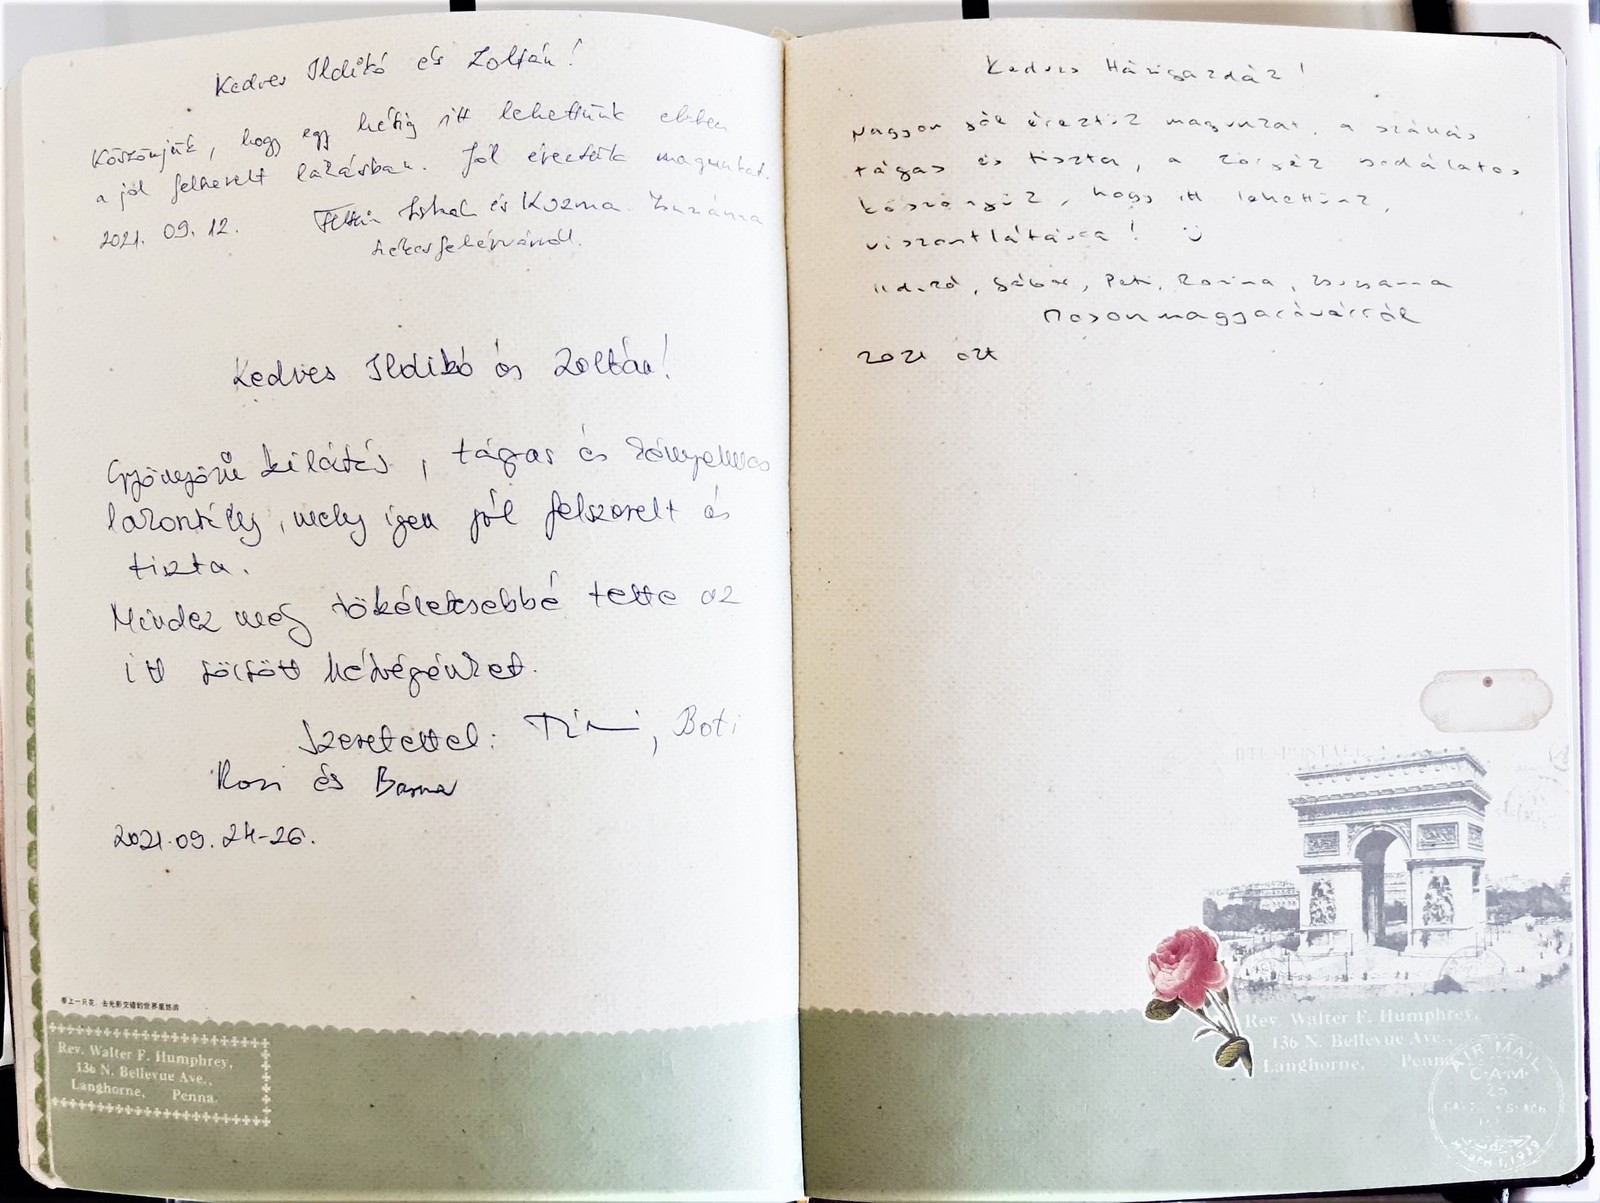 Kedves Ildikó és Zoltán!
Köszönjük, hogy egy hétig itt lehettünk ebben
a jól felszerelt lakásban. Jól éreztük magunkat.
2021. 09. 12. és Kozma Zuzánna
Székesfehérvárról.
Kedves Ildikó és Zoltán!
Gyönyörű kilátás, tágas és kényelmes
lakosztály, mely igen jól felszerelt és
tiszta.
Mindez még tökéletesebbé tette az
itt töltött hétvégénket.
Szeretettel: Timi, Boti
Rozi és Barna
2021.09.24-26.
牵上一只花 去光影交错的世界里旅游
Rev. Walter F. Humphrey,
136 N. Bellevue Ave.,
Langhorne, Penna.
Kedves Házigazdák!
Nagyon jól éreztük magunkat, a szállás
tágas és tiszta, a környék csodálatos
köszönjük, hogy itt lehettünk,
viszontlátásra!
Ildikó, Gábor, Peti, Korina, Zsuzsanna
Mosonmagyaróvárról
2021 okt
Rev. Walter F. Humphrey,
136 N. Bellevue Ave.,
Langhorne, Penna
AIR MAIL
C·A·M·
25